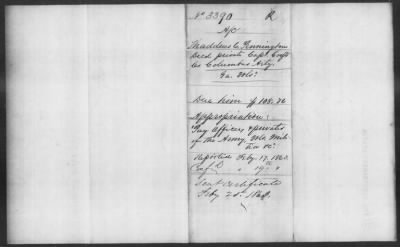 No 3390 R
A/C
Thaddeus C. Pennington
Decd private Capt Croft
les Columbus Arty.
Ga. Vols.
Due him $108.76
Appropriation:
Pay Officers & privates
of the Army, Vols. Mili-
tia &c.
Reported Feby. 17. 186
Confd " 19th "
Sent Certificate
Feby 20th